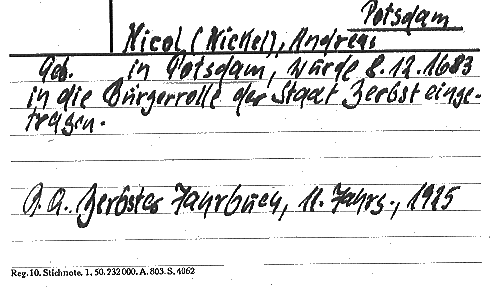 Potsdam
Nicol (Nickel), Andreas
Geb. in Potsdam, wurde 8.12.1683
in die Bürgerrolle der Stadt Zerbst einge-
tragen.
D.A. Zerbster Jahrbuch, 11. Jahrg., 1925
Reg. 10. Stichnote. 1. 50. 232 000. A. 803. S. 4062